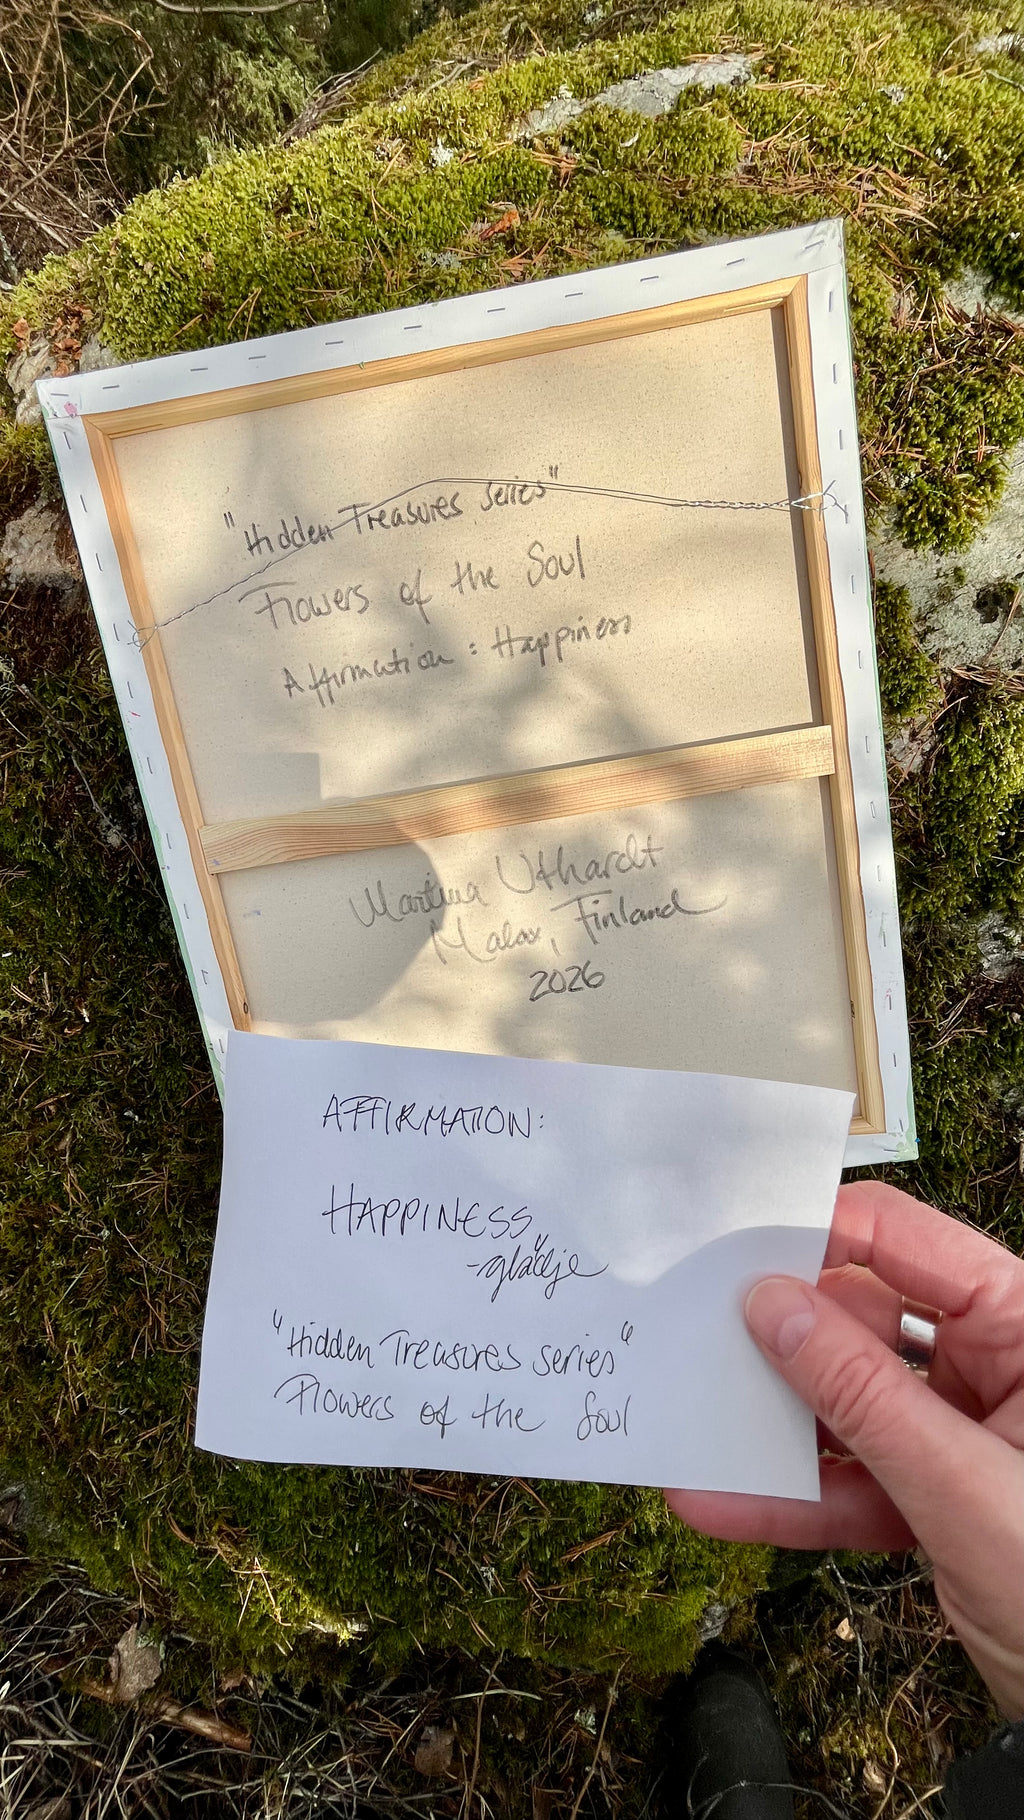 "Hidden Treasures series"
Flowers of the Soul
Affirmation: Happiness
Martina Uthardt
Malax, Finland
2026
AFFIRMATION:
HAPPINESS
-glädje
"Hidden Treasures series"
Flowers of the Soul